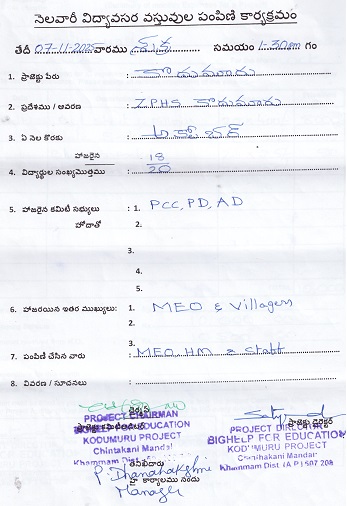 నెలవారీ విద్యావసర వస్తువుల పంపిణి కార్యక్రమం
తేదీ 07-11-2025 వారము శుక్ర సమయం 1-30pm గం
1. ప్రాజెక్టు పేరు : కొడుమూరు
2. ప్రదేశము / ఆవరణ : ZPHS కొడుమూరు
3. ఏ నెల కొరకు : అక్టోబర్
హాజరైన 18
4. విద్యార్థుల సంఖ్య మొత్తము : 20
5. హాజరైన కమిటీ సభ్యులు : 1. PCC, PD, AD
హోదాతో 2.
3.
4.
5.
6. హాజరయిన ఇతర ముఖ్యులు: 1. MEO & Villagers
2.
7. పంపిణి చేసిన వారు : MEO, HM & Staff
8. వివరణ / సూచనలు :
PROJECT CHAIRMAN
BIGHELP FOR EDUCATION
KODUMURU PROJECT
Chintakani Mandal
Khammam Dist
ప్రాజెక్టు డైరెక్టర్
PROJECT DIRECTOR
BIGHELP FOR EDUCATION
KODUMURU PROJECT
Chintakani Mandal
Khammam Dist (A P) 507 208
తనిఖీదారు
P Dhanalakshmi
హై కార్యాలము నందు
Manager